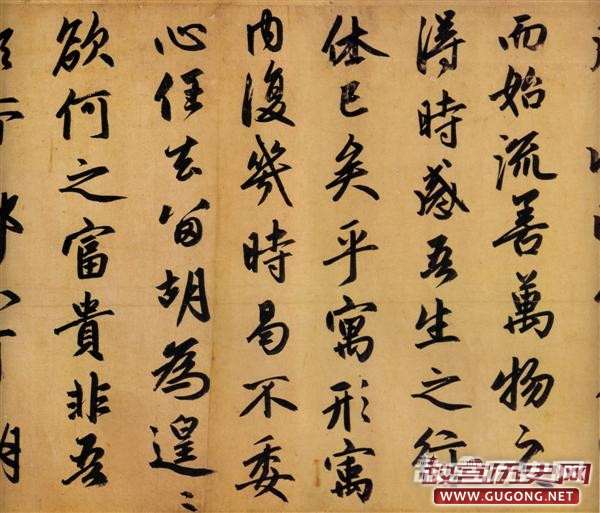 而始流善萬物之
得時感吾生之行
休已矣乎寓形寓
内復幾時曷不委
心任去留胡為遑〻
欲何之富貴非吾
故宫历史网
WWW.GUGONG.NET